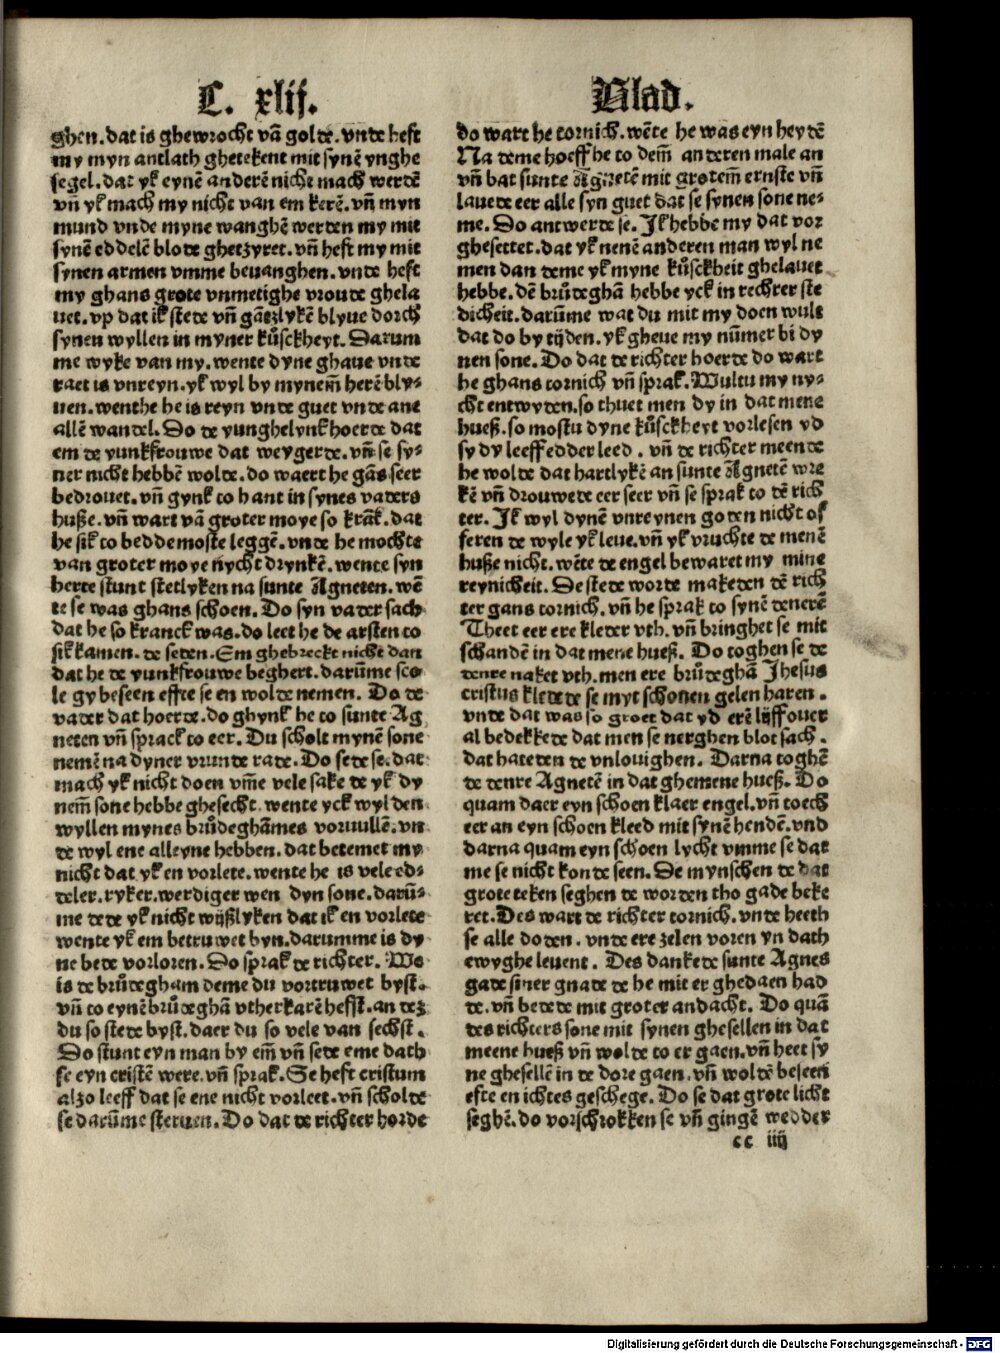 C. xlij. Blad.
ghen. dat is ghewrocht vā golde. vnde heft
my myn antlath ghetekent mit synē ynghe
segel. dat yk eynē anderē nicht mach werdē
vn̄ yk mach my nicht van em kerē. vn̄ myn
mund vnde myne wanghē werden my mit
synē eddelē blode ghetzyret. vn̄ heft my mit
synen armen vmme beuanghen. vnde heft
my ghans grote vnmetighe vroude ghela
uet. vp dat ik stede vn̄ gātzlykē blyue dorch
synen wyllen in myner kůsckheyt. Darum
me wyke van my. wente dyne ghaue vnde
raet is vnreyn. yk wyl by mynem̄ herē bly⸗
uen. wenthe he is reyn vnde guet vnde ane
allē wandel. Do de yunghelynk hoerde dat
em de yunkfrouwe dat weygerde. vn̄ se sy⸗
ner nicht hebbē wolde. do waert he gās seer
bedrouet. vn̄ gynk to hant in synes vaders
huße. vn̄ wart vā groter moye so krāk. dat
he sik to bedde moste leggē. vnde he mochte
van groter moye nycht drynkē. wente syn
herte stunt stetlyken na sunte Agneten. wē
te se was ghans schoen. Do syn vader sach
dat he so kranck was. do leet he de arsten to
sik kamen. de seden. Em ghebreckt nicht dan
dat he de yunkfrouwe beghert. darūme sco
le gy beseen effte se en wolde nemen. Do de
vader dat hoerde. do ghynk he to sunte Ag
neten vn̄ sprack to eer. Du scholt mynē sone
nemē na dyner vrunde rade. Do sede se. dat
mach yk nicht doen vm̄e vele sake de yk dy
nem̄ sone hebbe ghesecht. wente yck wyl den
wyllen mynes brůdeghāmes voruullē. vn
de wyl ene alleyne hebben. dat betemet my
nicht dat yk en vorlete. wente he is vele ed⸗
deler. ryker. werdiger wen dyn sone. darū⸗
me dede yk nicht wijßlyken dat ik en vorlete
wente yk em betruwet byn. darumme is dy
ne bede vorloren. Do sprak de richter. We
is de brůdegham deme du vortruwet byst.
vn̄ to eynē brůdeghā vtherkarē heffst. an dez
du so stede byst. daer du so vele van sechst.
Do stunt eyn man by em̄ vn̄ sede eme dath
se eyn cristē were. vn̄ sprak. Se heft cristum
alzo leeff dat se ene nicht vorleet. vn̄ scholde
se darūme steruen. Do dat de richter horde
do wart he tornich. wēte he was eyn heydē
Na deme hoeff he to dem̄ anderen male an
vn̄ bat sunte Agnetē mit grotem̄ ernste vn̄
lauede eer alle syn guet dat se synen sone ne⸗
me. Do antwerde se. Ik hebbe my dat vor
ghesettet. dat yk nenē anderen man wyl ne
men dan deme yk myne kůsckheit ghelauet
hebbe. dē brůdeghā hebbe yck in rechter ste
dicheit. darūme wat du mit my doen wult
dat do by tijden. yk gheue my nūmer bi dy
nen sone. Do dat de richter hoerde do wart
he ghans tornich vn̄ sprak. Wultu my ny⸗
cht entwyden. so thuet men dy in dat mene
hueß. so mostu dyne kůsckheyt vorlesen yd
sy dy leeff edder leed. vn̄ de richter meende
he wolde dat hartlykē an sunte Agnetē wre
kē vn̄ drouwede eer seer vn̄ se sprak to dē rich
ter. Ik wyl dynē vnreynen goden nicht of
feren de wyle yk leue. vn̄ yk vruchte de menē
huße nicht. wēte de engel bewaret my mine
reynicheit. De stede worde makeden dē rich
ter gans tornich. vn̄ he sprak to synē denerē
Theet eer ere kleder vth. vn̄ bringhet se mit
schandē in dat mene hueß. Do toghen se de
denre naket vth. men ere brůdeghā Jhesus
cristus kledede se myt schonen gelen haren.
vnde dat was so groet dat yd erē lijff ouer
al bedekkede dat men se nerghen blot sach.
dat hateden de vnlouighen. Darna toghē
de denre Agnetē in dat ghemene hueß. Do
quam daer eyn schoen klaer engel. vn̄ toech
eer an eyn schoen kleed mit synē hendē. vnd
darna quam eyn schoen lycht vmme se dat
me se nicht konde seen. De mynschen de dat
grote teken seghen de worden tho gade beke
ret. Des wart de richter tornich. vnde heeth
se alle doden. vnde ere zelen voren yn dath
ewyghe leuent. Des dankede sunte Agnes
gade siner gnade de he mit er ghedaen had
de. vn̄ bedede mit groter andacht. Do quā
des richters sone mit synen ghesellen in dat
meene hueß vn̄ wolde to er gaen. vn̄ heet sy
ne ghesellē in de dore gaen. vn̄ woldē beseen
efte en ichtes geschege. Do se dat grote licht
seghē. do vorschrokken se vn̄ gingē wedder
cc iiij
Digitalisierung gefördert durch die Deutsche Forschungsgemeinschaft - DFG